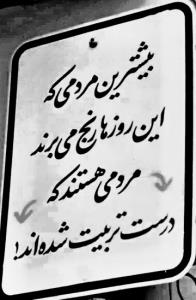 بیشترین مردمی که
این روزها رنج می برند
مردمی هستند که
درست تربیت شده اند!